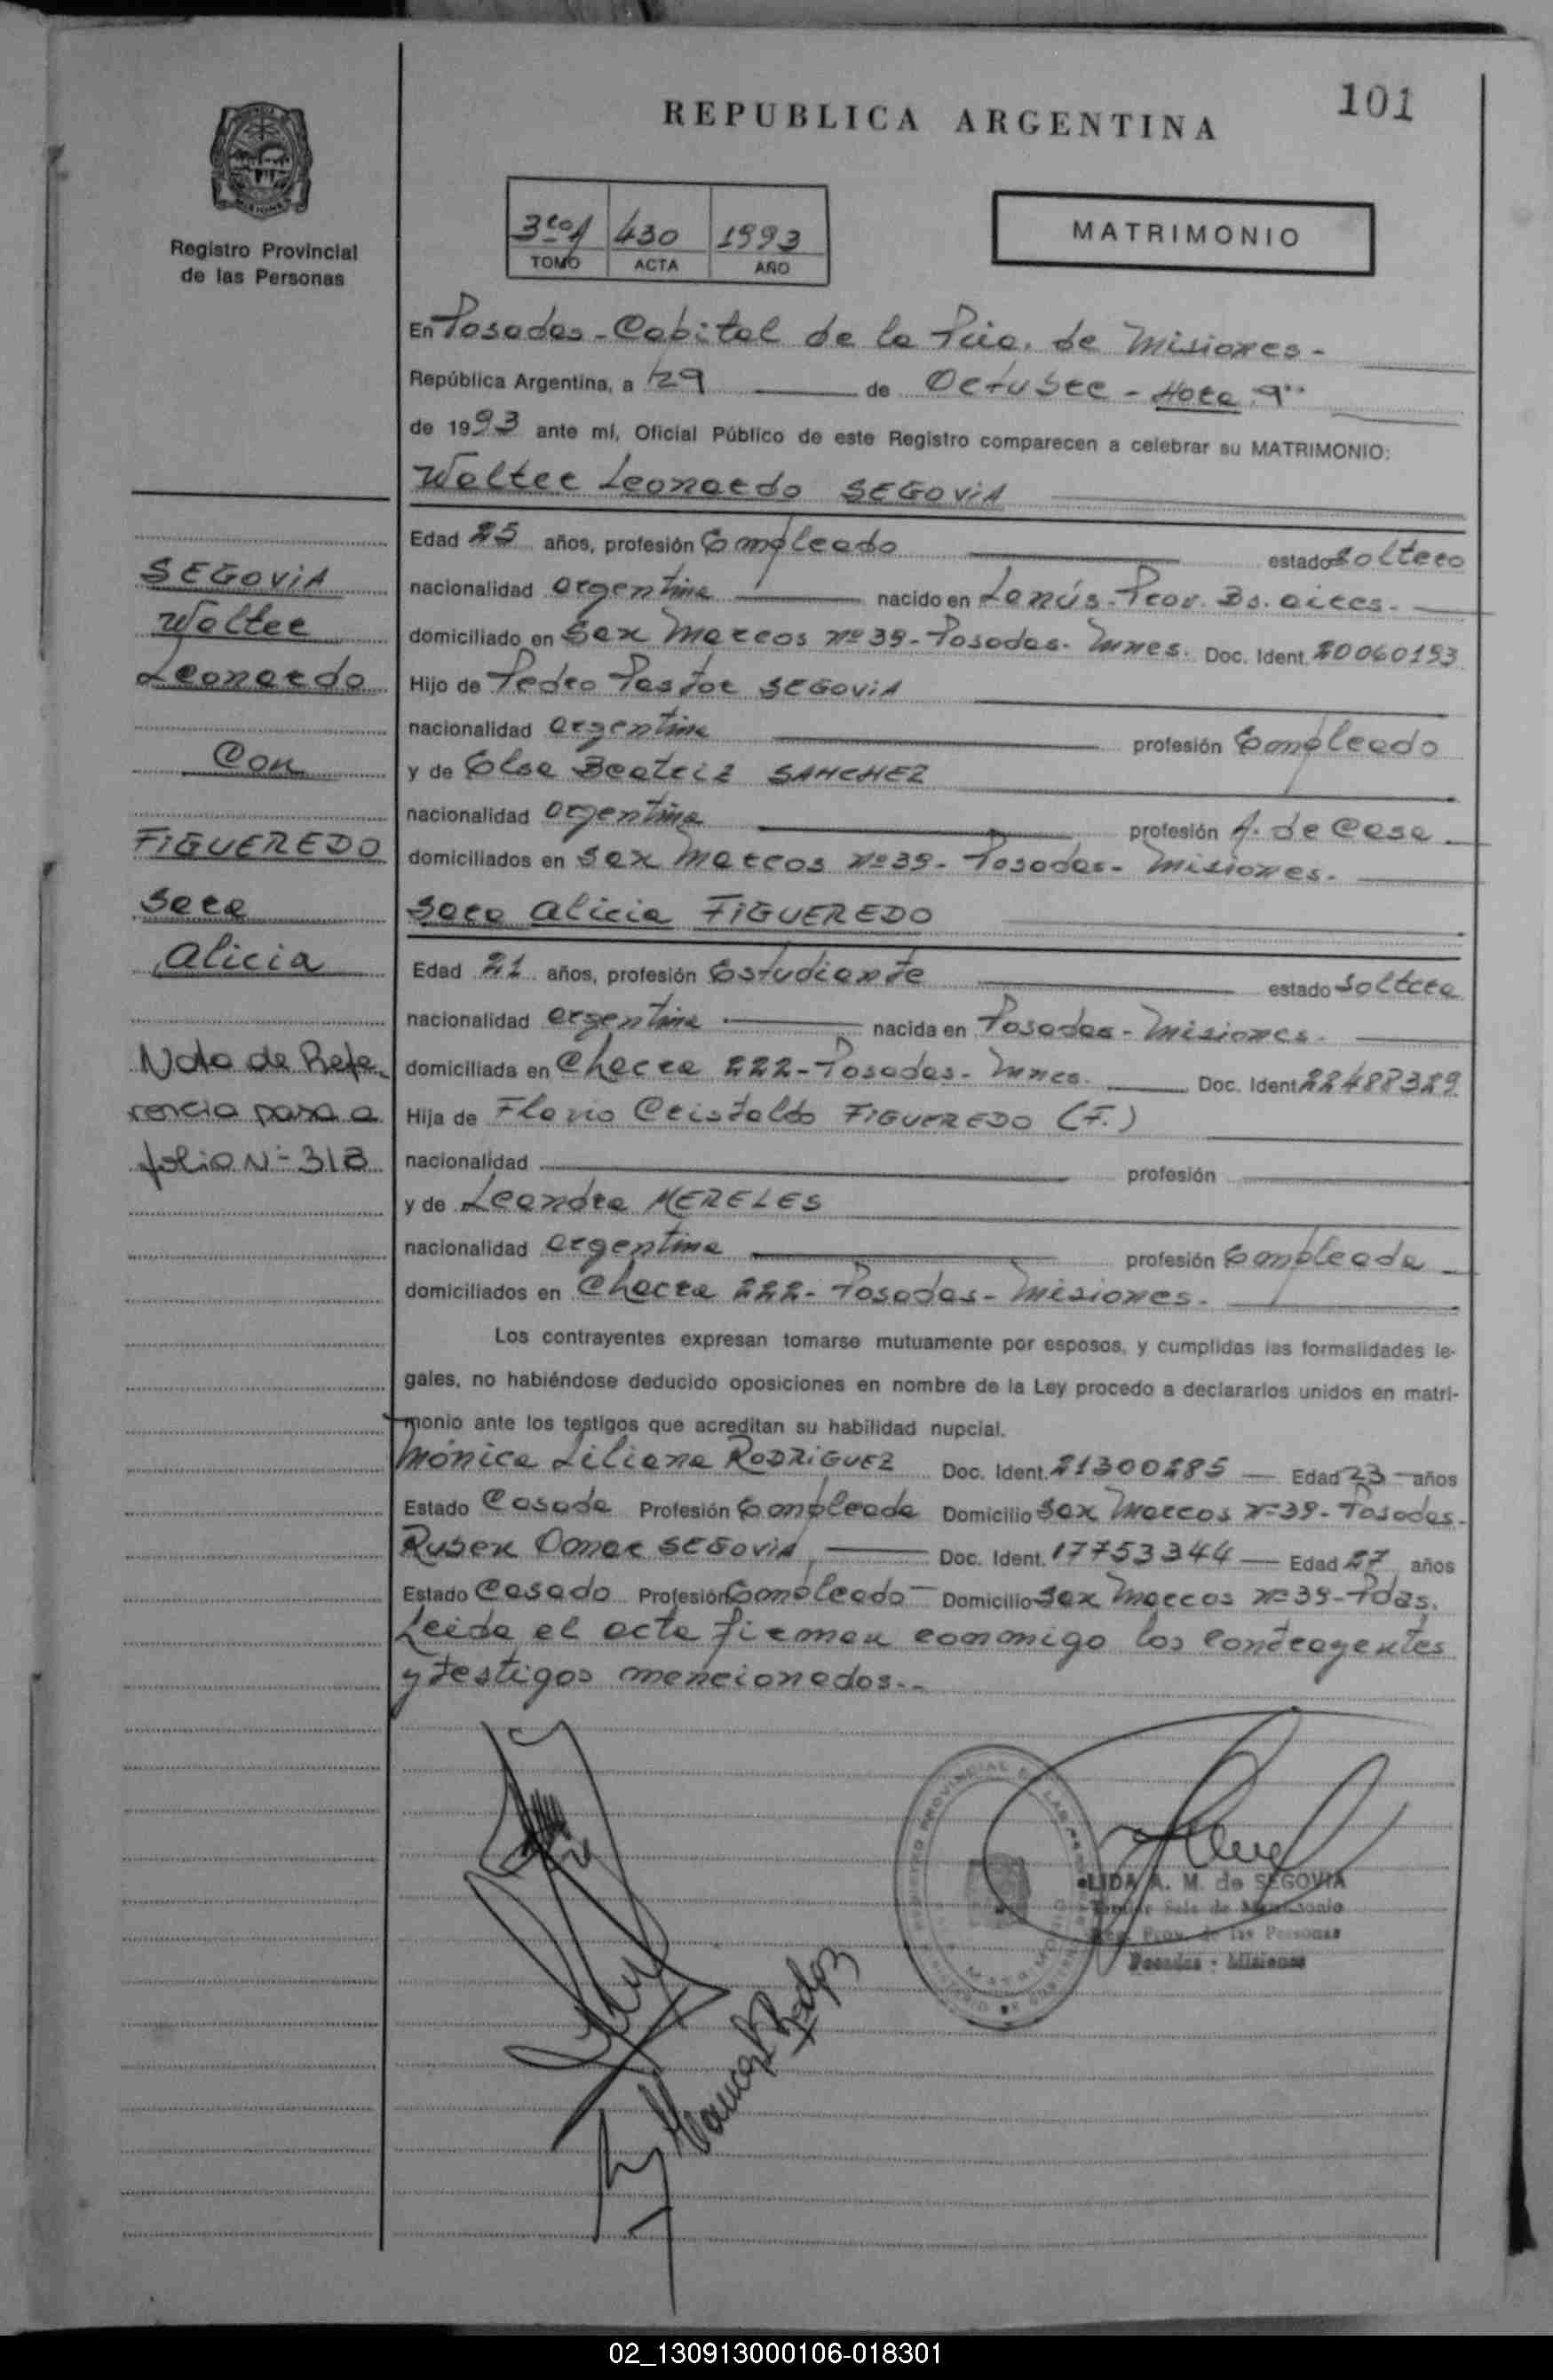 101
REPUBLICA ARGENTINA
MATRIMONIO
Registro Provincial
de las Personas
3ro 1 430 1993
TOMO ACTA AÑO
En Posadas - Capital de la Pcia. de Misiones -
República Argentina, a 29 de Octubre - Hora 9
de 1993 ante mí, Oficial Público de este Registro comparecen a celebrar su MATRIMONIO:
Walter Leonardo SEGOVIA
Edad 25 años, profesión Empleado estado soltero
nacionalidad argentina nacido en Lanús - Prov. Bs. aires.
domiciliado en San Marcos nº 39 - Posadas - Mnes. Doc. Ident. 20060193
Hijo de Pedro Pastor SEGOVIA
nacionalidad argentina profesión Empleado
y de Elsa Beatriz SANCHEZ
nacionalidad argentina profesión A. de Casa
domiciliados en San Marcos nº 39 - Posadas - Misiones.
Sara Alicia FIGUEREDO
Edad 21 años, profesión Estudiante estado soltera
nacionalidad argentina nacida en Posadas - Misiones.
domiciliada en Chacra 222 - Posadas - Mnes. Doc. Ident 22488389
Hija de Flavio Cristaldo FIGUEREDO (F.)
nacionalidad profesión
y de Leandra MERELES
nacionalidad argentina profesión Empleada
domiciliados en Chacra 222 - Posadas - Misiones.
Los contrayentes expresan tomarse mutuamente por esposos, y cumplidas las formalidades le-
gales, no habiéndose deducido oposiciones en nombre de la Ley procedo a declararlos unidos en matri-
monio ante los testigos que acreditan su habilidad nupcial.
Mónica Liliana RODRIGUEZ Doc. Ident. 21300285 Edad 23 años
Estado Casada Profesión Empleada Domicilio San Marcos nº 39 - Posadas.
Ruben Omar SEGOVIA Doc. Ident. 17753344 Edad 27 años
Estado Casado Profesión Empleado Domicilio San Marcos nº 39 - Pdas.
Leida el acta firman conmigo los contrayentes
y testigos mencionados.-
SEGOVIA
Walter
Leonardo
Con
FIGUEREDO
Sara
Alicia
Nota de Refe-
rencia pasa a
folio Nº 318
LIDA A. M. de SEGOVIA
Reg. Prov. de las Personas
Posadas - Misiones
02_130913000106-018301